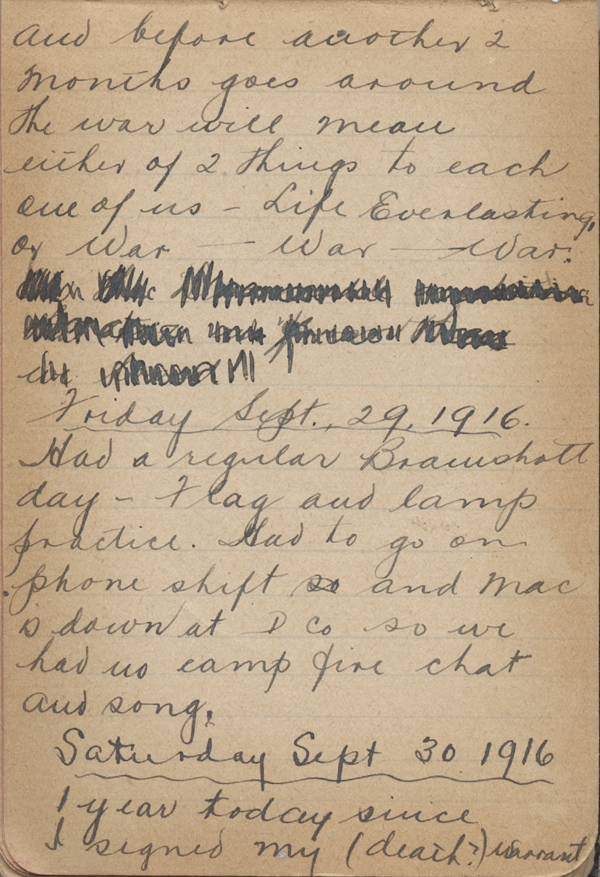 and before another 2
months goes around
the war will mean
either of 2 things to each
one of us - Life Everlasting,
or War — War — War.
Friday Sept. 29, 1916.
Had a regular Bramshott
day - Flag and lamp
practice. Had to go on
phone shift so and Mac
is down at D Co so we
had no camp fire chat
and song.
Saturday Sept 30 1916
1 year today since
I signed my (death?) warrant